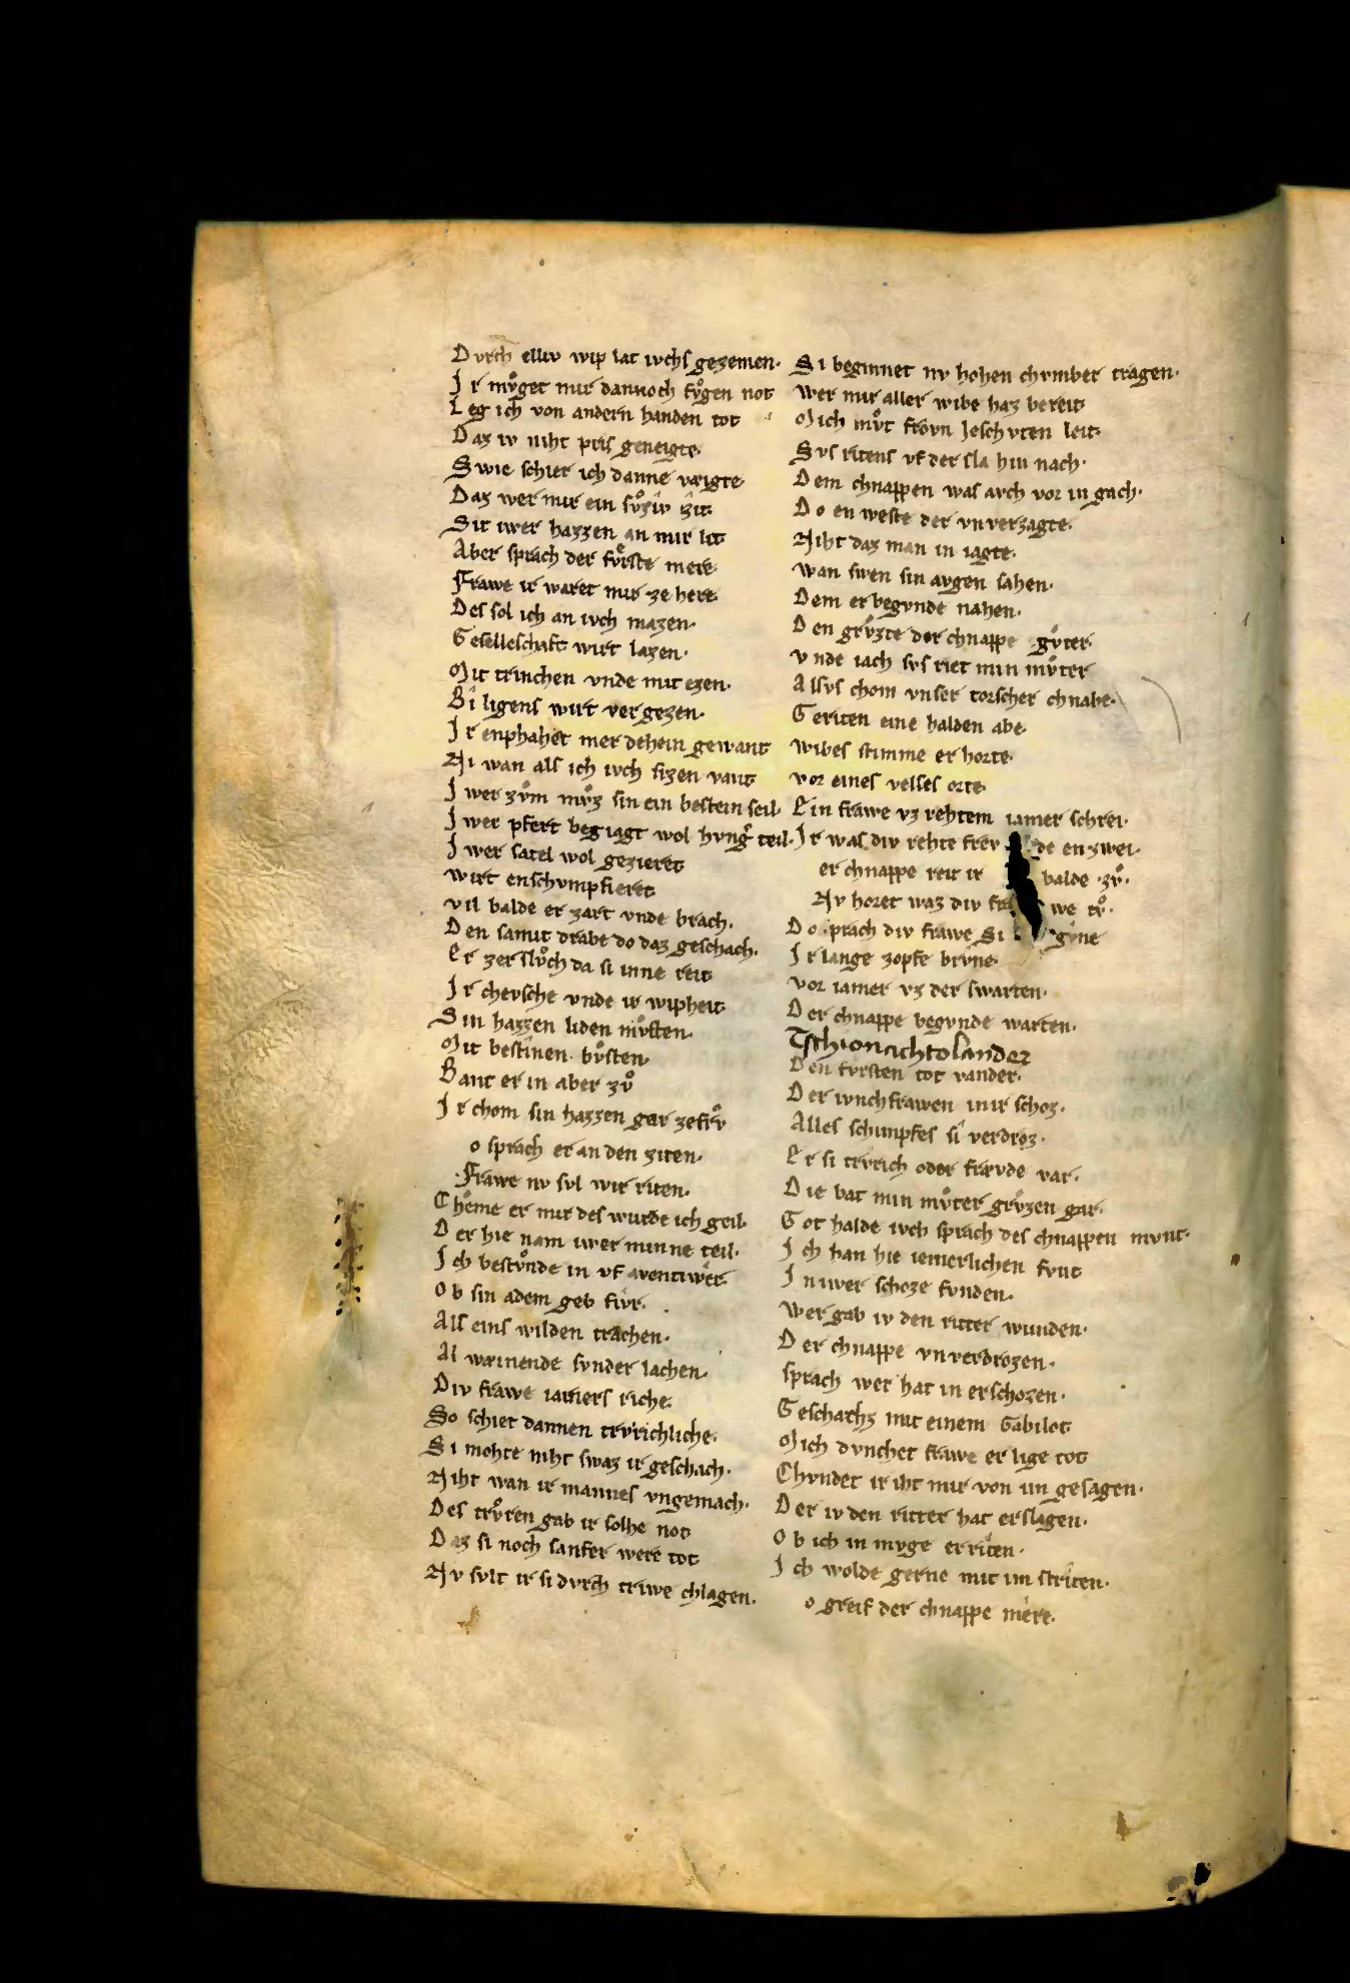 Dvrch elliv wip lat ivchs gezemen·
Ir mvͦget mir dannoch fvͦgen not
Leg ich von andern handen tot
Daz iv niht pris geneigte·
Swie schier ich danne vaigte
Daz wer mir ein svͦziv zit
Sit iwer hazzen an mir lit
Aber sprach der fvͤrste mere
Frawe ir waret mir ze here
Des sol ich an ivch mazen·
Geselleschaft wirt lazen·
Mit trinchen vnde mit ezen·
Bi ligens wirt vergezen·
Ir enphahet mer dehein gewant
Ni wan als ich ivch sizen vant
Iwer zvͦm mvͦz sin ein bestein seil·
Iwer pfert begiagt wol hvng͛ teil·
Iwer satel wol gezieret
wirt enschvmpfieret
vil balde er zart vnde brach·
Den samit drabe do daz geschach·
Er zerslvͦch da si inne reit
Ir chevsche vnde ir wipheit
Sin hazzen liden mvͦsten·
Mit bestinen· bvͦsten
Bant er in aber zvͦ
Ir chom sin hazzen gar zefrvͦ
o sprach er an den ziten·
Frawe nv svl wir riten·
Cheme er mir des wurde ich geil·
Der hie nam iwer minne teil·
Ich bestvͦnde in vf aventiwer
Ob sin adem geb fivr·
Als eins wilden trachen·
Al wainende svnder lachen·
Div frawe iamers riche
So schiet dannen trvrichliche·
Si mohte niht swaz ir geschach·
Niht wan ir mannes vngemach·
Des trvͦren gab ir solhe not
Daz si noch sanfter were tot
Nv svlt ir si dvrch triwe chlagen·
Si beginnet nv hohen chvmber tragen·
Wer mir aller wibe haz bereit
Mich mvͦt frovn Ieschvten leit
Svs ritens vf der sla hin nach·
Dem chnappen was avch vor in gach·
Do en weste der vnverzagte·
Niht daz man in iagte·
wan swen sin avgen sahen·
Dem er begvnde nahen·
Den grvͦzte der chnappe gvͦter
vnde iach svs riet min mvͦter
Alsvs chom vnser torscher chnabe·
Geriten eine halden abe
wibes stimme er horte·
vor eines velses orte
Ein frawe vz rehtem iamer schrei·
Ir was div rehte frev de en zwei·
er chnappe reit ir balde zvͦ·
Nv horet waz div fra we tvͦ·
Do sprach div frawe Si gvne
Ir lange zopfe brvne
vor iamer vz der swarten·
Der chnappe begvnde warten·
Tschionachtolander
Den fvrsten tot vander·
Der ivnchfrawen in ir schoz·
Alles schimpfes si verdroz·
Er si trvrich oder frævde var·
Die bat min mvͦter grvͦzen gar·
Got halde ivch sprach des chnappen mvnt·
Ich han hie iemerlichen fvnt
In iwer schoze fvnden·
Wer gab iv den ritter wunden·
Der chnappe vnverdrozen·
sprach wer hat in erschozen·
Geschachz mit einem Gabilot
Mich dvnchet frawe er lige tot
Chvndet ir iht mir von im gesagen·
Der iv den ritter hat erslagen·
Ob ich in mvge erriten·
Ich wolde gerne mit im striten·
o greif der chnappe mere